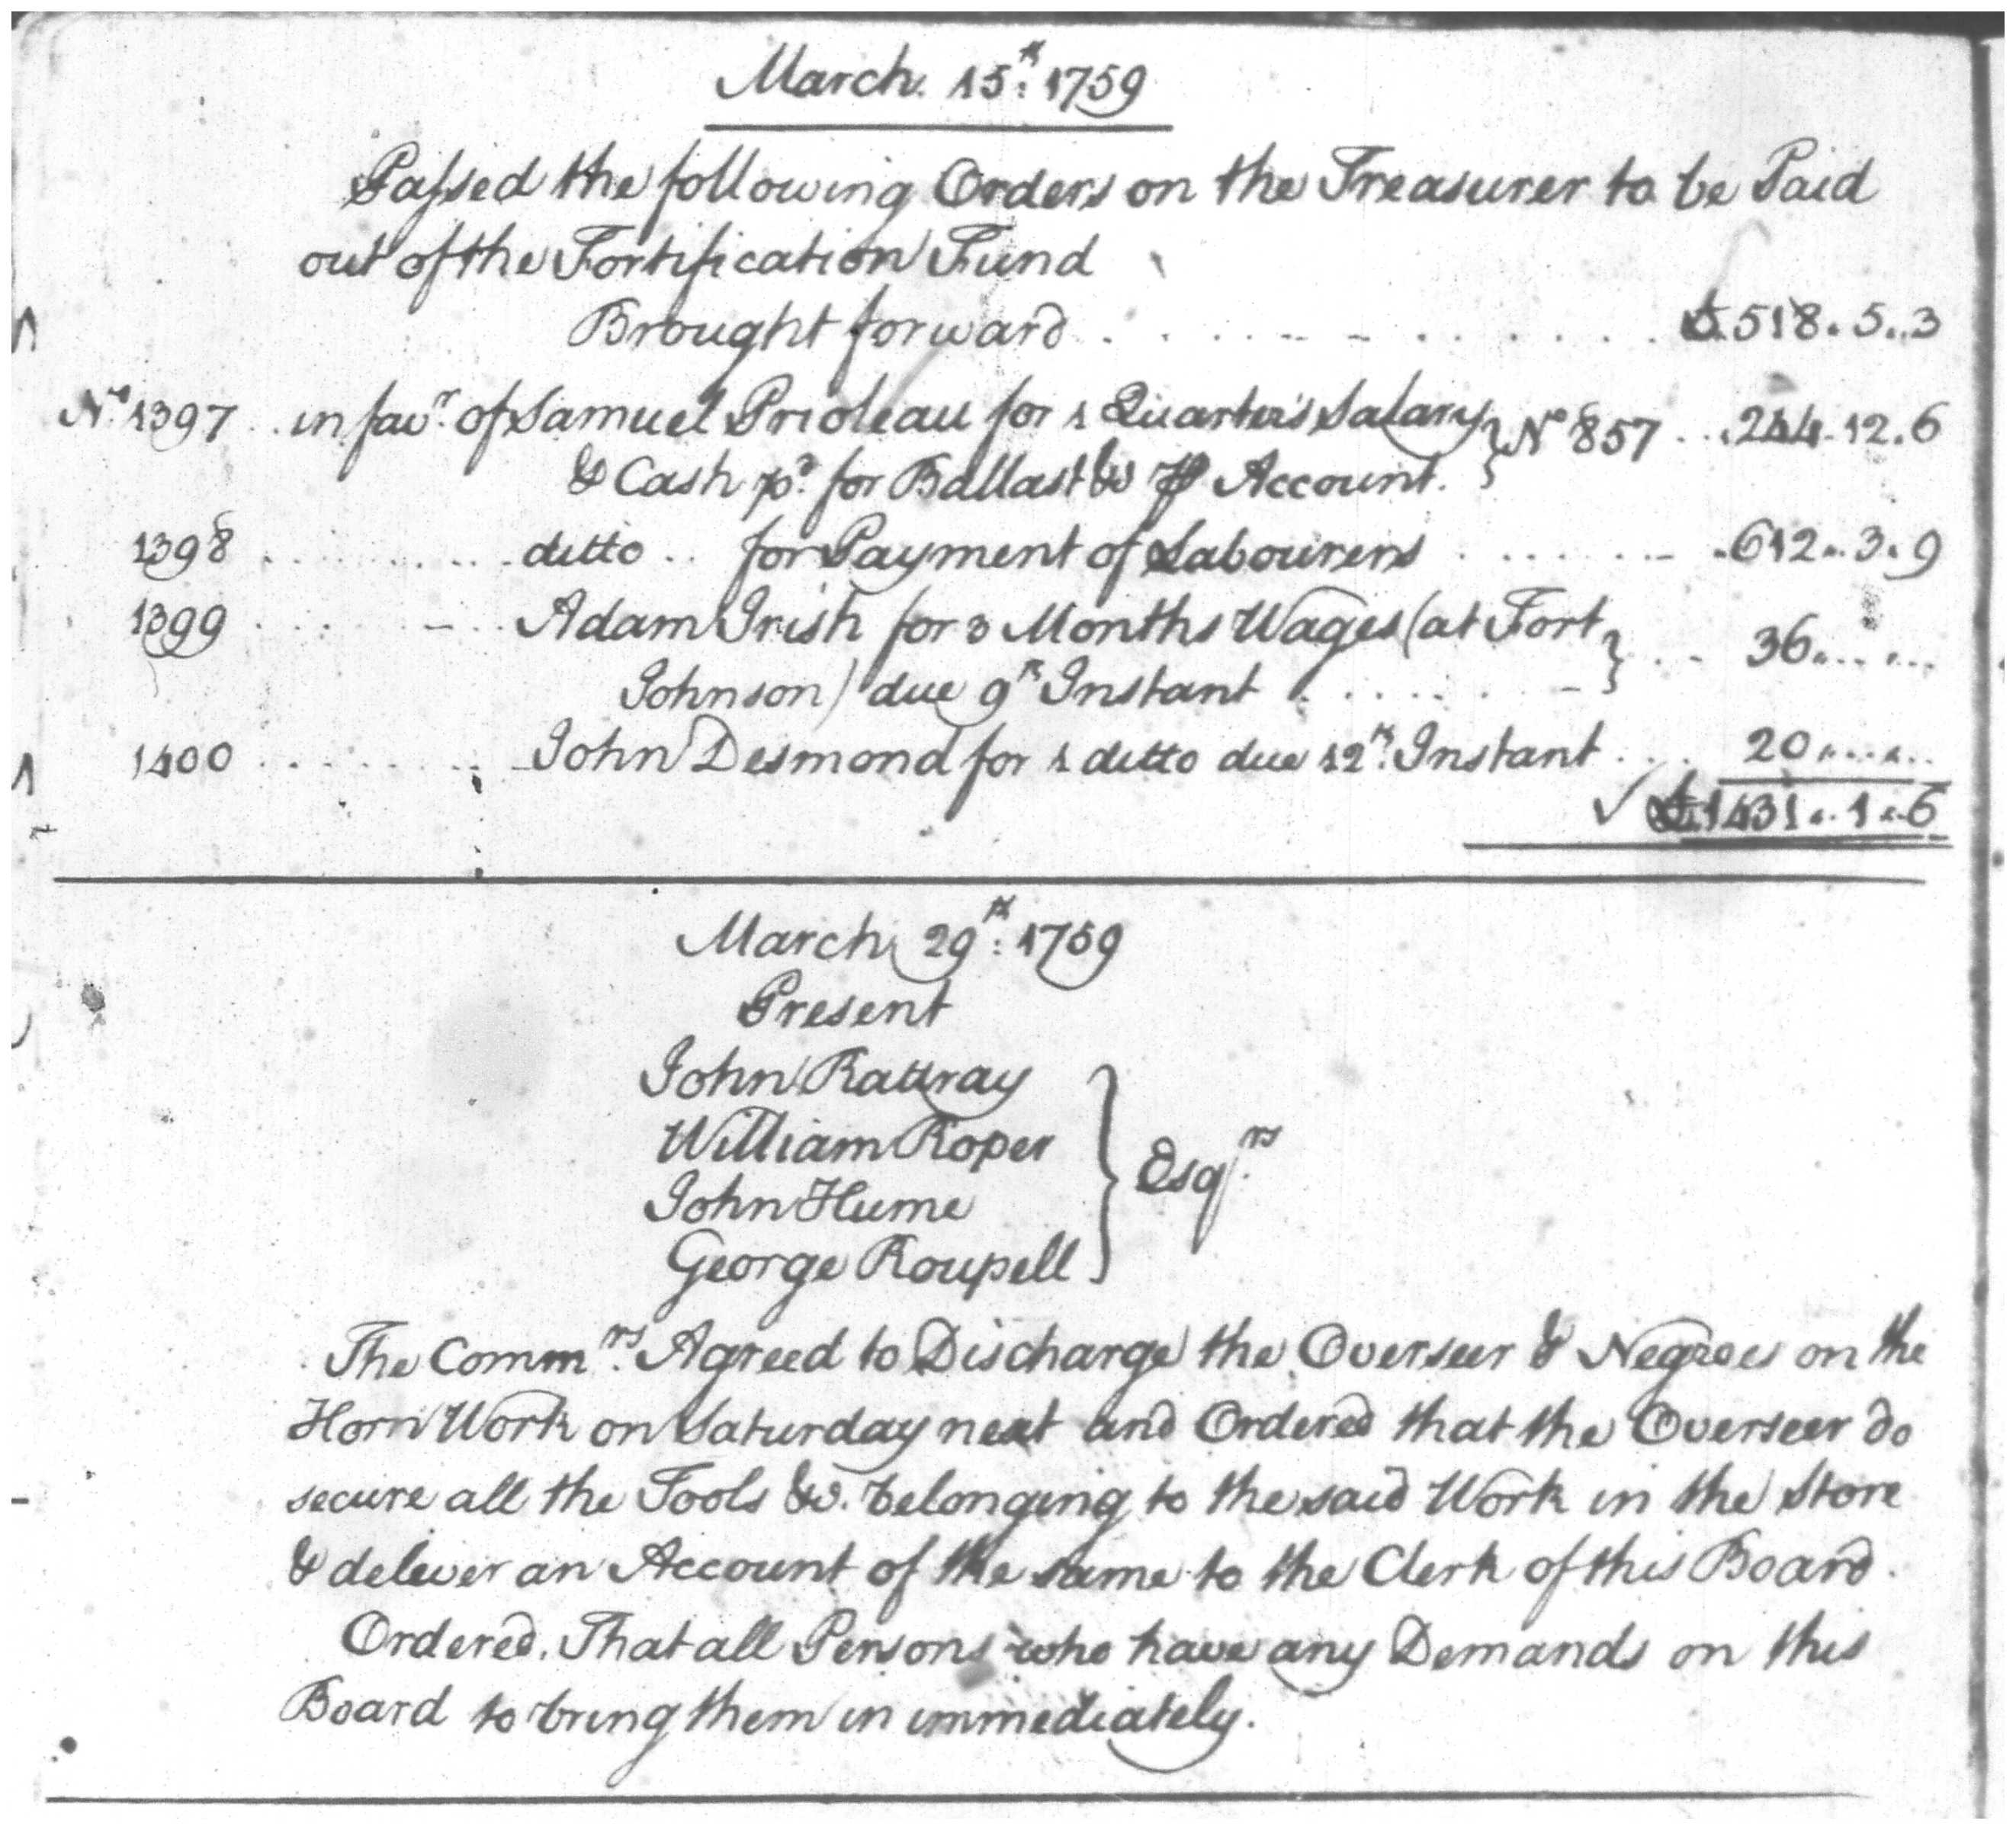 March. 15th: 1759
Passed the following Orders on the Treasurer to be Paid
out of the Fortification Fund
Brought forward . . . . . . . . . . . £518. 5..3
No. 1397 .. in favr. of Samuel Prioleau for 1 Quarter's Salary } No 857 ... 244. 12. 6
& Cash pd. for Ballast &c ⅌ Account.
1398 . . . . . . . . ditto .. for Payment of Labourers . . . . . . 612.. 3. 9
1399 . . . . . . . . Adam Irish for 3 Months Wages (at Fort } . . . 36.. ... ...
Johnson) due 9th Instant . . . . . .
1400 . . . . . . . . John Desmond for 1 ditto due 12th: Instant . . . 20.. ... ..
✓ £1431.. 1..6
March 29th: 1759
Present
John Rattray
William Roper
John Hume
George Roupell
} Esqrs.
The Commrs. Agreed to Discharge the Overseer & Negroes on the
Horn Work on Saturday next and Ordered that the Overseer do
secure all the Tools &c. belonging to the said Work in the Store
& deliver an Account of the same to the Clerk of this Board.
Ordered. That all Persons who have any Demands on this
Board to bring them in immediately.